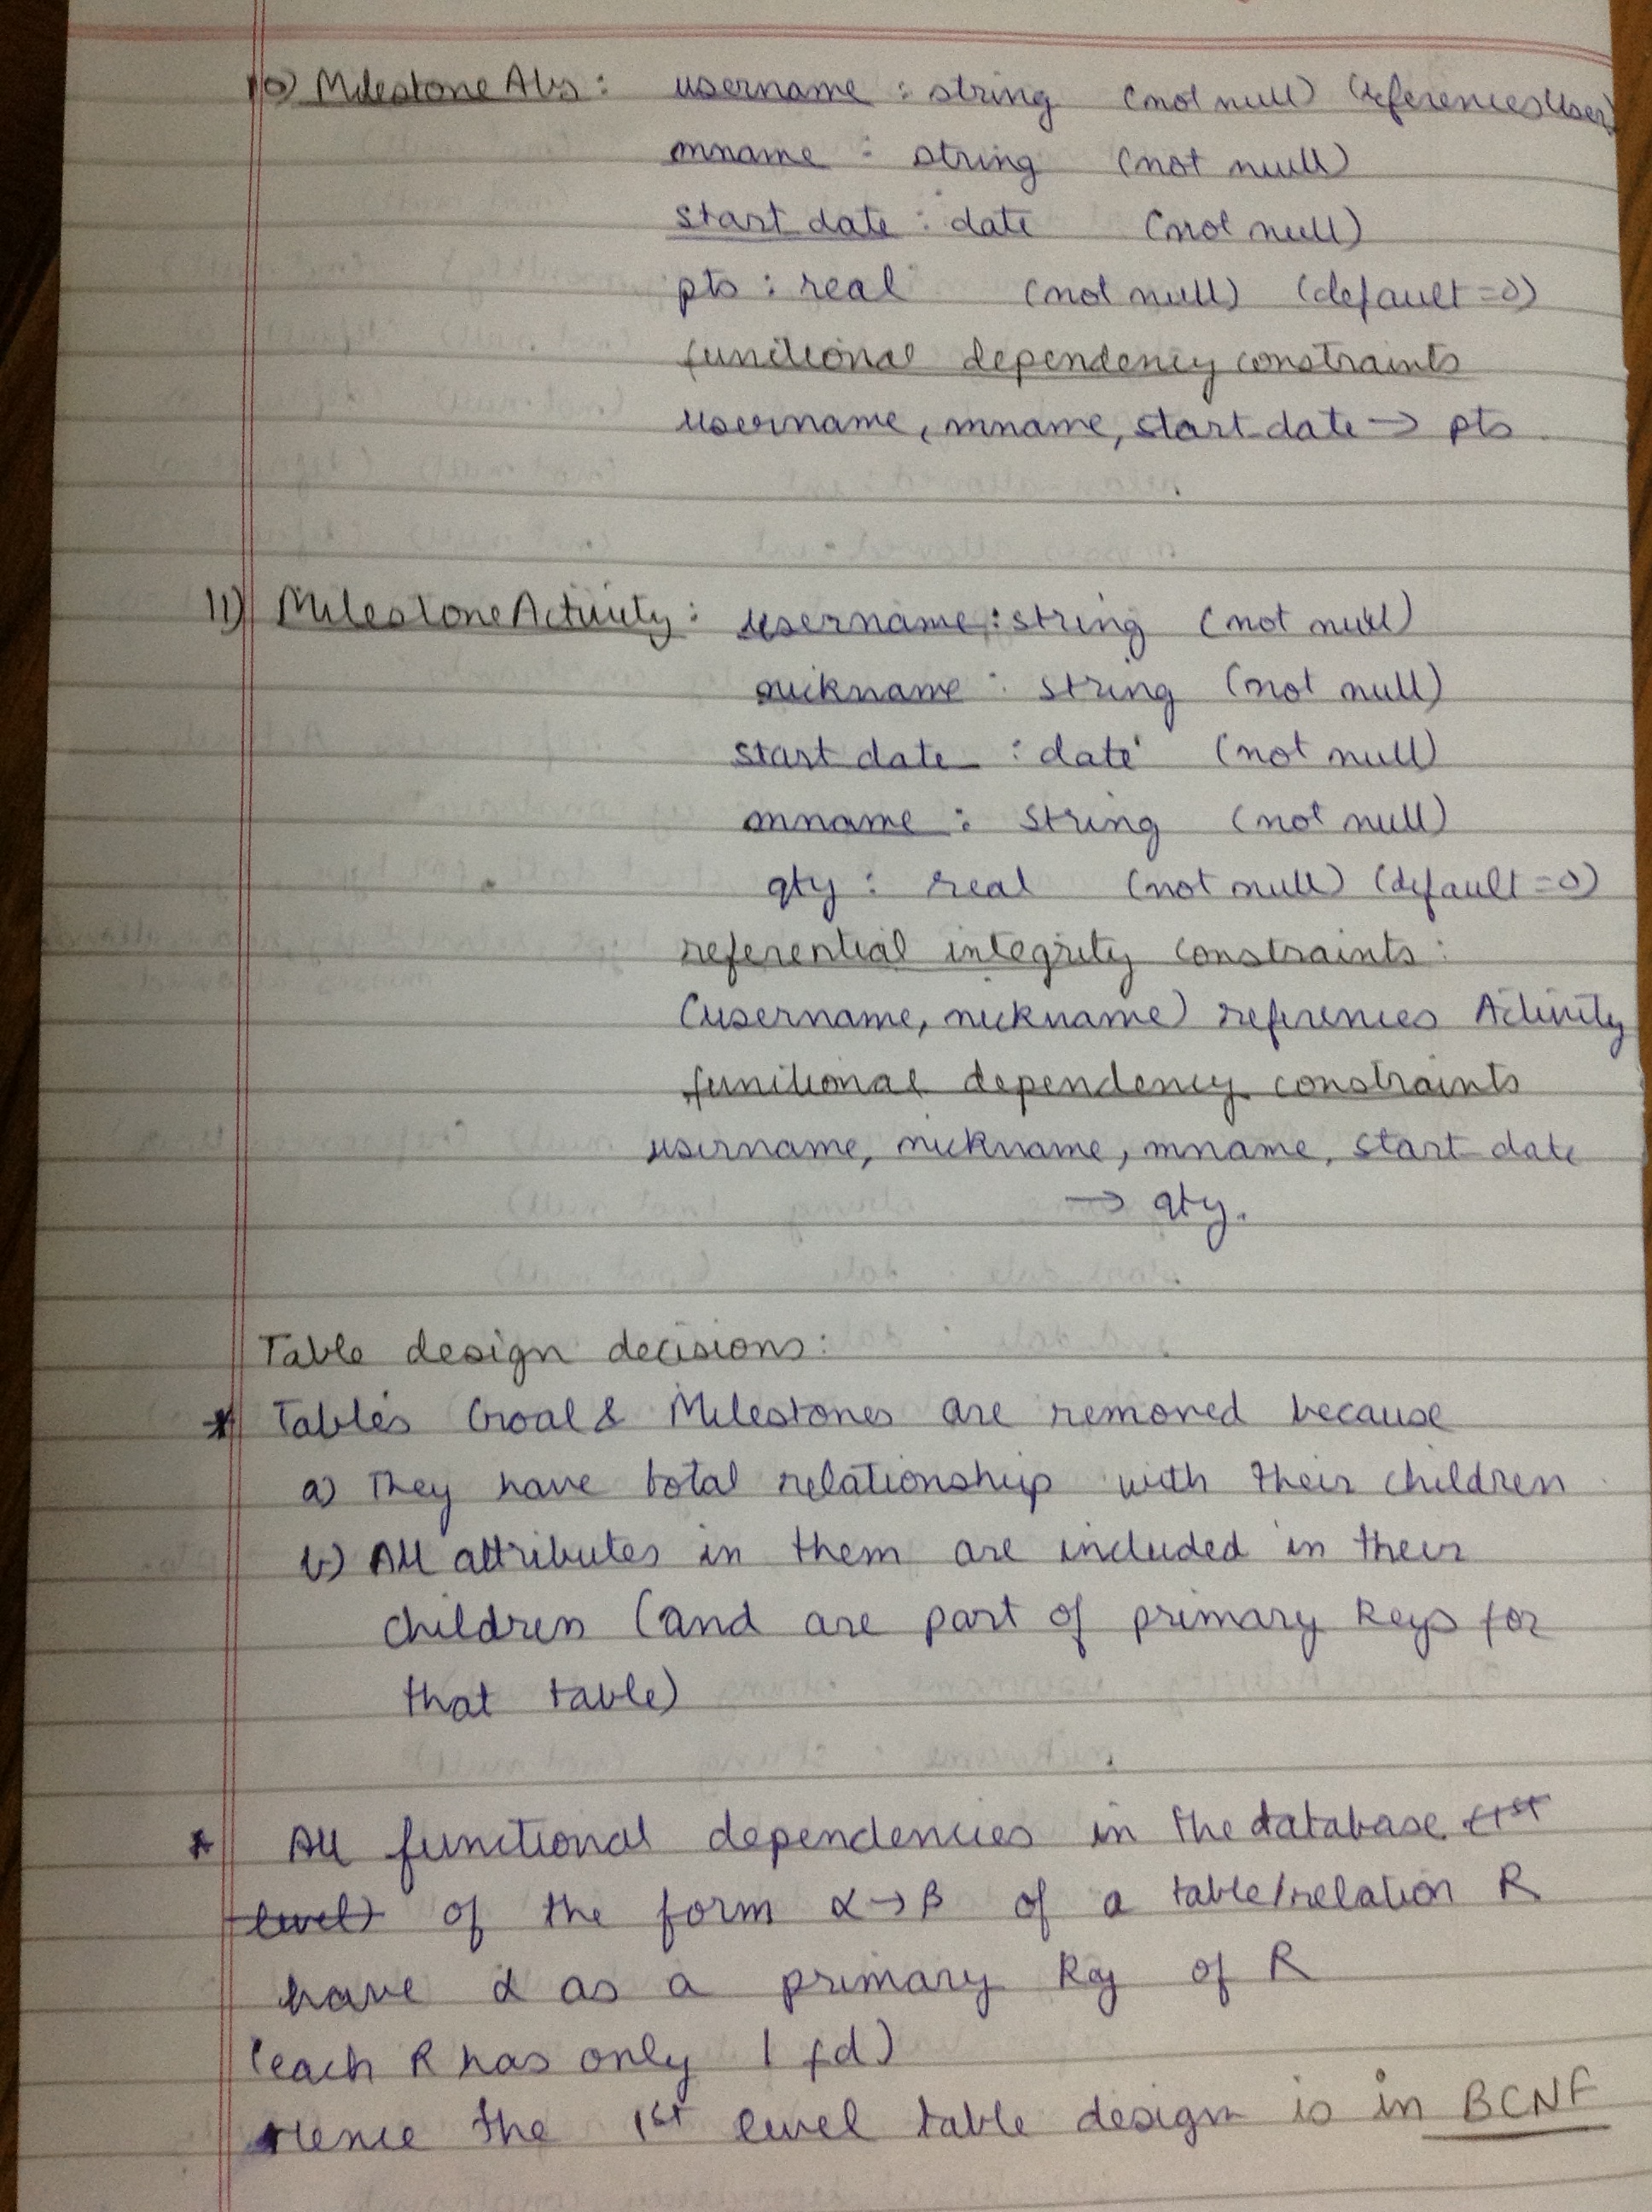 10) MilestoneAbs : username : string (not null) (references User)
mname : string (not null)
start date : date (not null)
pts : real (not null) (default = 0)
functional dependency constraints
username, mname, start date → pts
11) MilestoneActivity : username : string (not null)
nickname : string (not null)
start date : date (not null)
mname : string (not null)
qty : real (not null) (default = 0)
referential integrity constraints :
(username, nickname) references Activity
functional dependency constraints
username, nickname, mname, start date
→ qty.
Table design decisions :
* Tables Goal & Milestones are removed because
a) They have total relationship with their children
b) All attributes in them are included in their
children (and are part of primary keys for
that table)
* All functional dependencies in the database (1st
level) of the form α → β of a table/relation R
have α as a primary key of R
(each R has only 1 fd)
Hence the 1st level table design is in BCNF